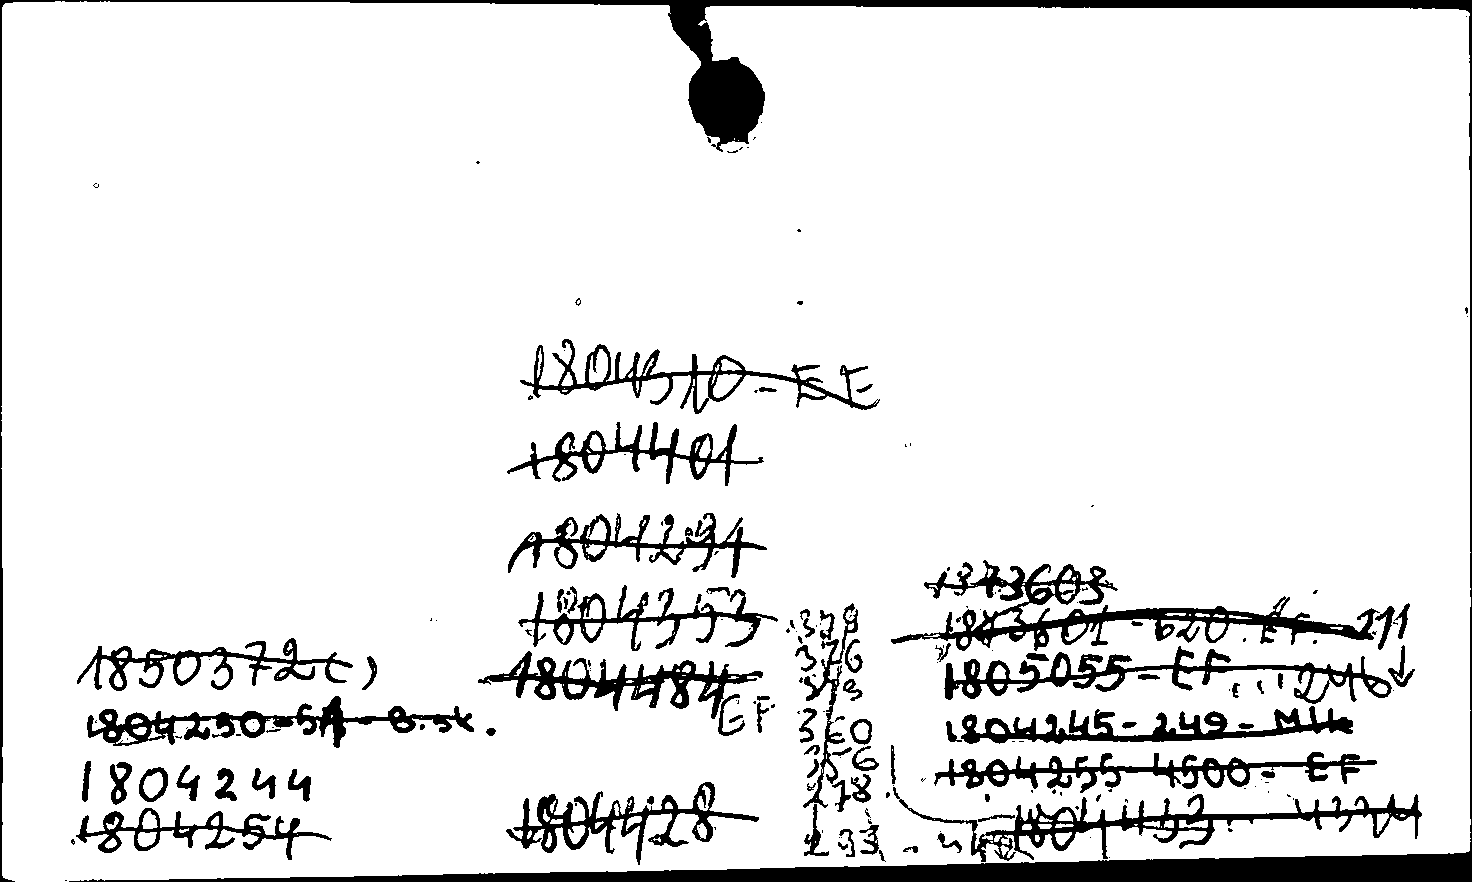 1804310-EF
1804401
1804291
1804353
1804484
EF
1804428
1850372( )
1804250-5A-B.sk.
1804244
1804254
376
360
356
278
293
1873608
1873601-620. EF. 211
1805055-EF ... 246
1804245-249-Mlk
1804255-4500-EF